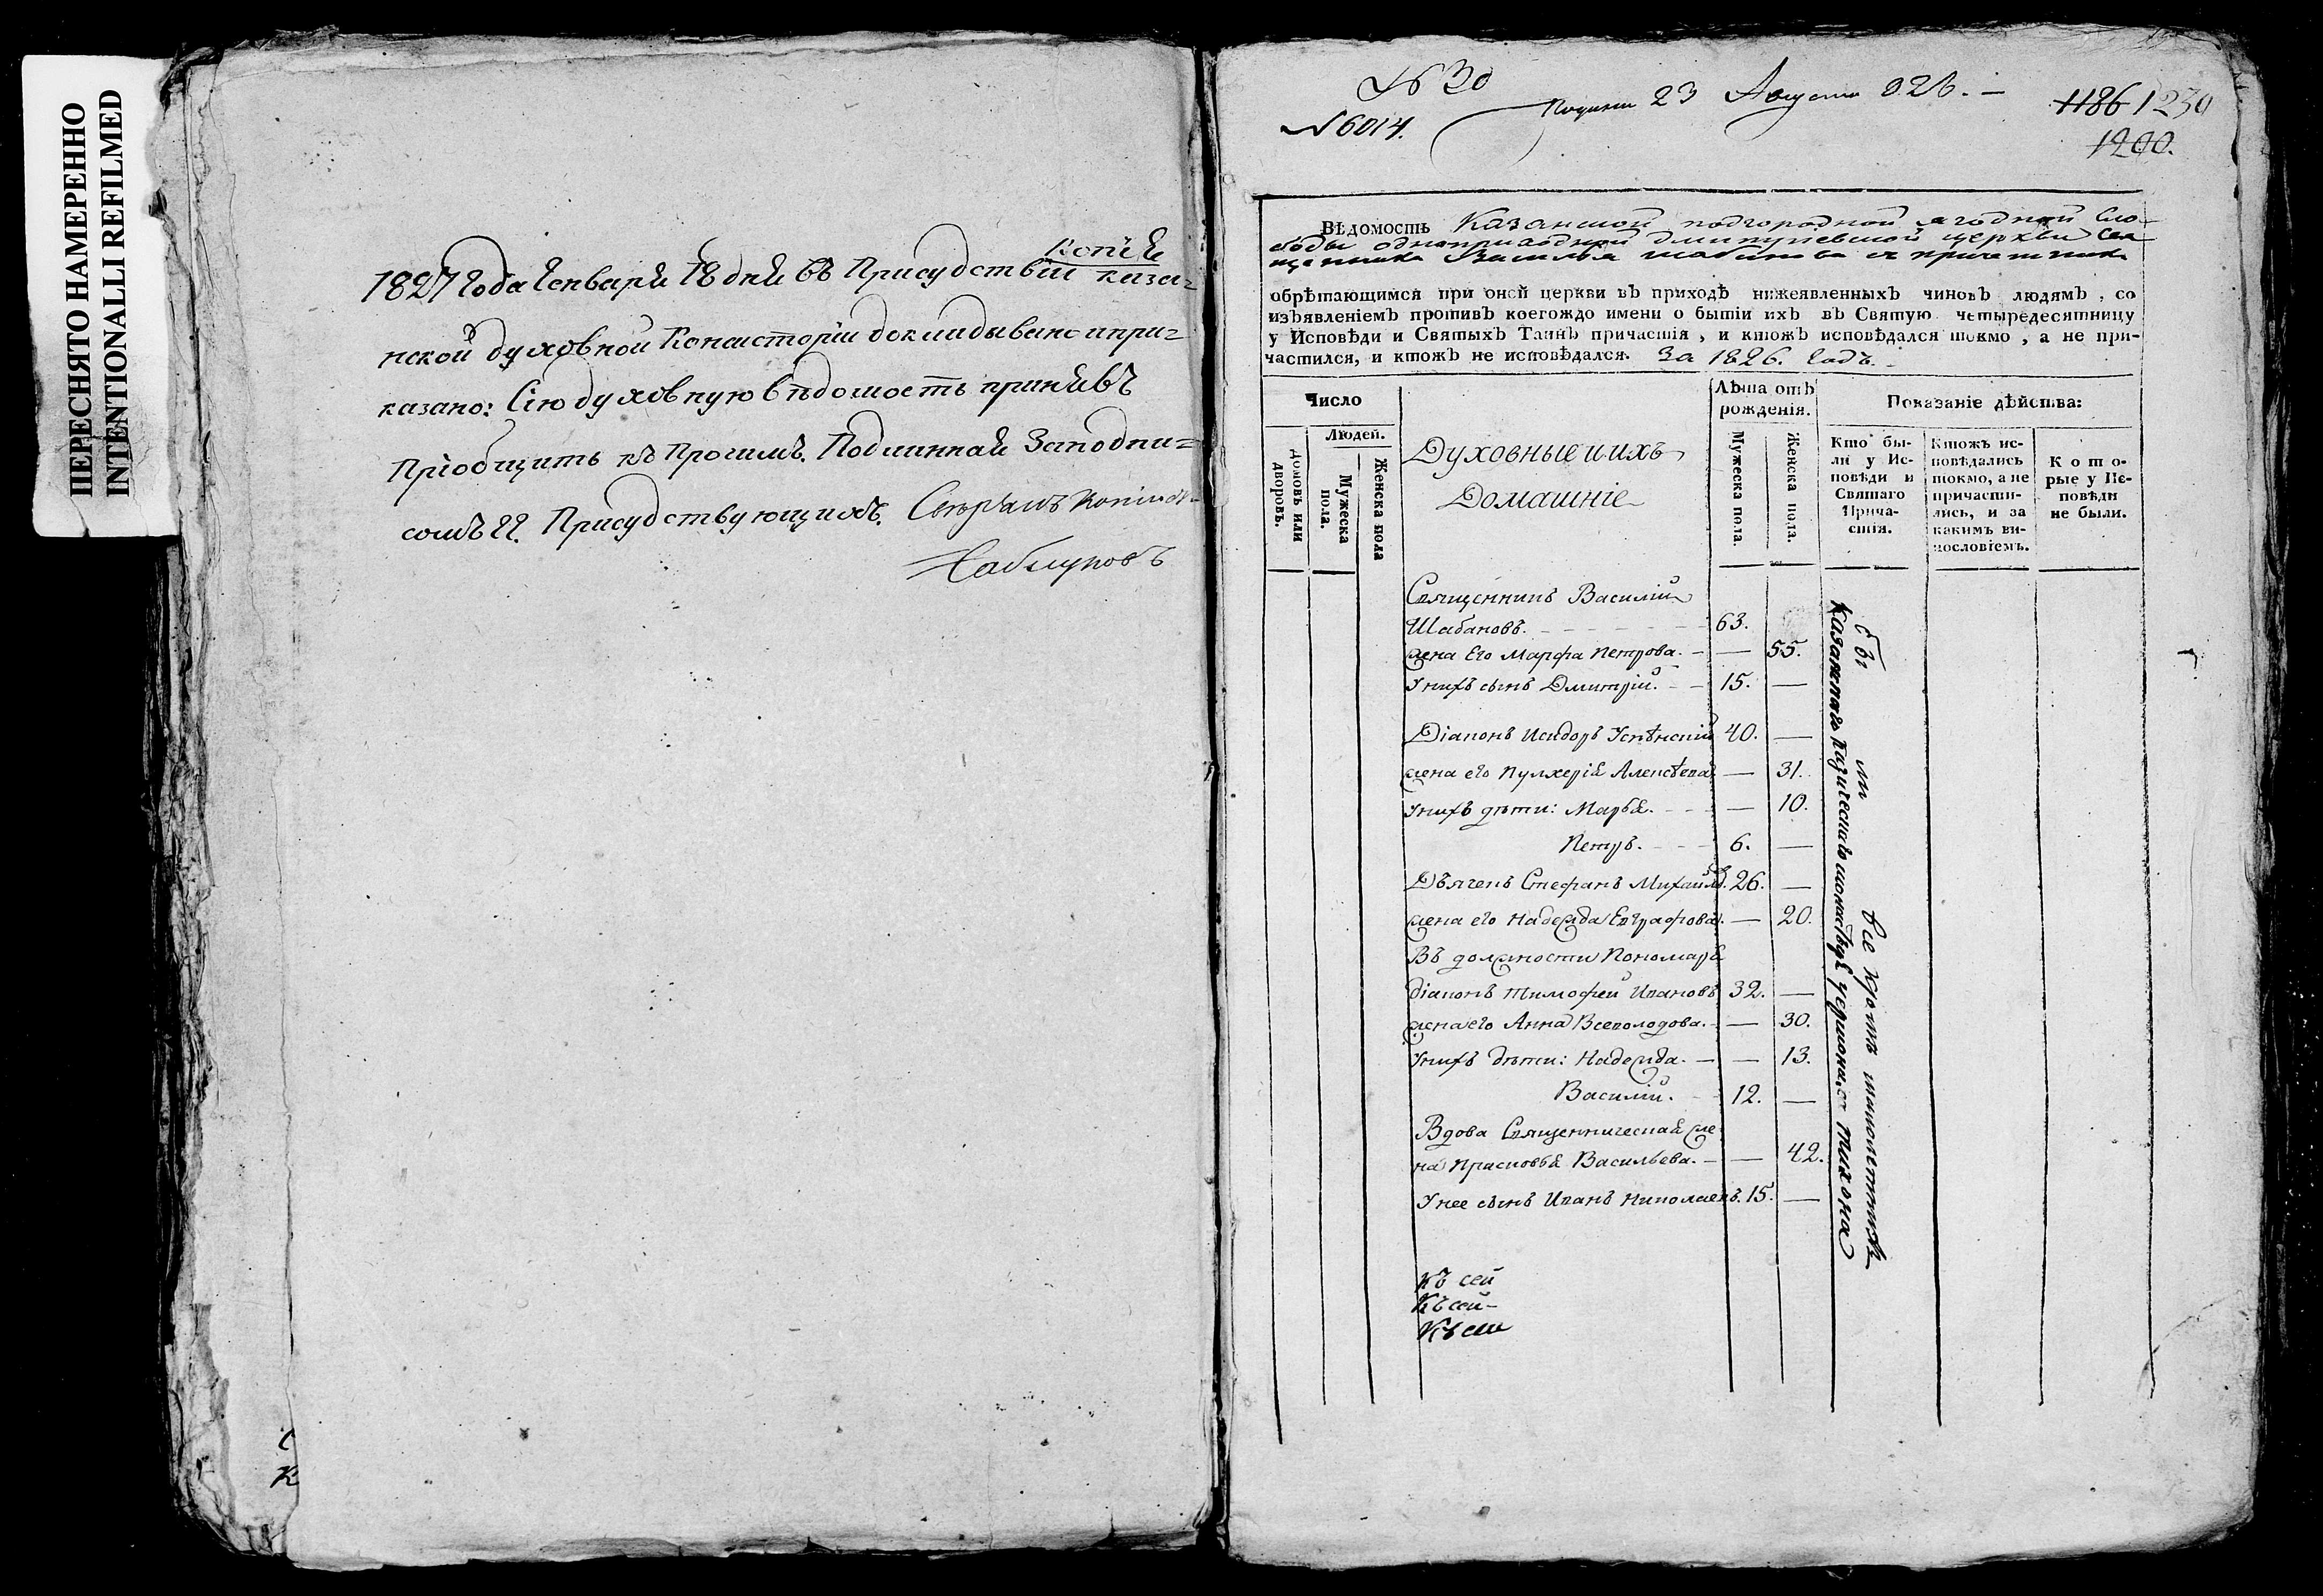 ПЕРЕСНЯТО НАМЕРЕННО
INTENTIONALLI REFILMED
Копія
1827 года Генваря 18 дня въ Присудствіи каза-
нской духовной Консисторіи докладывано и при-
казано: Сію духовную вѣдомость принявъ
Пріобщить къ Прочимъ. Подлинная За подпи-
сомъ гг. Присудствующихъ.
№ 30
№ 6014.
23 Августа 826. —
1186 1230
1200.
Вѣдомость Казанской подгородной ягодной Сло-
боды одноприходной дмитріевской церкви Свя
щенника Василья Шабанова съ причетники
обрѣтающимся при оной церкви въ приходѣ нижеявленныхъ чиновъ людямъ, со
изъявленіемъ противъ коегождо имени о бытіи ихъ въ Святую четыредесятницу
у Исповѣди и Святыхъ Таинъ причастія, и ктожъ исповѣдался токмо, а не при-
частился, и ктожъ не исповѣдался. За 1826. Годъ.
Число
Людей.
Домовъ или дворовъ.
Мужеска пола.
Женска пола
Духовные и ихъ
Домашніе
Лѣта отъ рожденія.
Мужеска пола.
Женска пола.
Показаніе дѣйства:
Кто бы-
ли у Ис-
повѣди и
Святаго
Прича-
стія.
Ктожъ ис-
повѣдались
токмо, а не
причасти-
лись, и за
какимъ ви-
нословіемъ.
К о т о-
рые у Ис-
повѣди
не были.
Священникъ Василій
Шабановъ. 63.
жена Его Марфа Петрова. — 55.
У нихъ сынъ Дмитрій. 15. —
Діаконъ Исидоръ Успѣнскій 40. —
жена его Пулхерія Алексѣева — 31.
У нихъ дѣти: Марья. — 10.
Петръ. 6. —
Дьячекъ Стефанъ Михайловъ. 26. —
жена его Надежда Евграфова. — 20.
Въ должности Пономаря
діаконъ Тимофей Ивановъ 32. —
жена его Анна Всеволодова. — 30.
У нихъ дѣти: Надежда. — 13.
Василій. 12. —
Вдова Священническая же-
на Прасковья Васильева. — 42.
У нее сынъ Иванъ Николаевъ. 15. —
къ сей
Къ сей
Къ сей